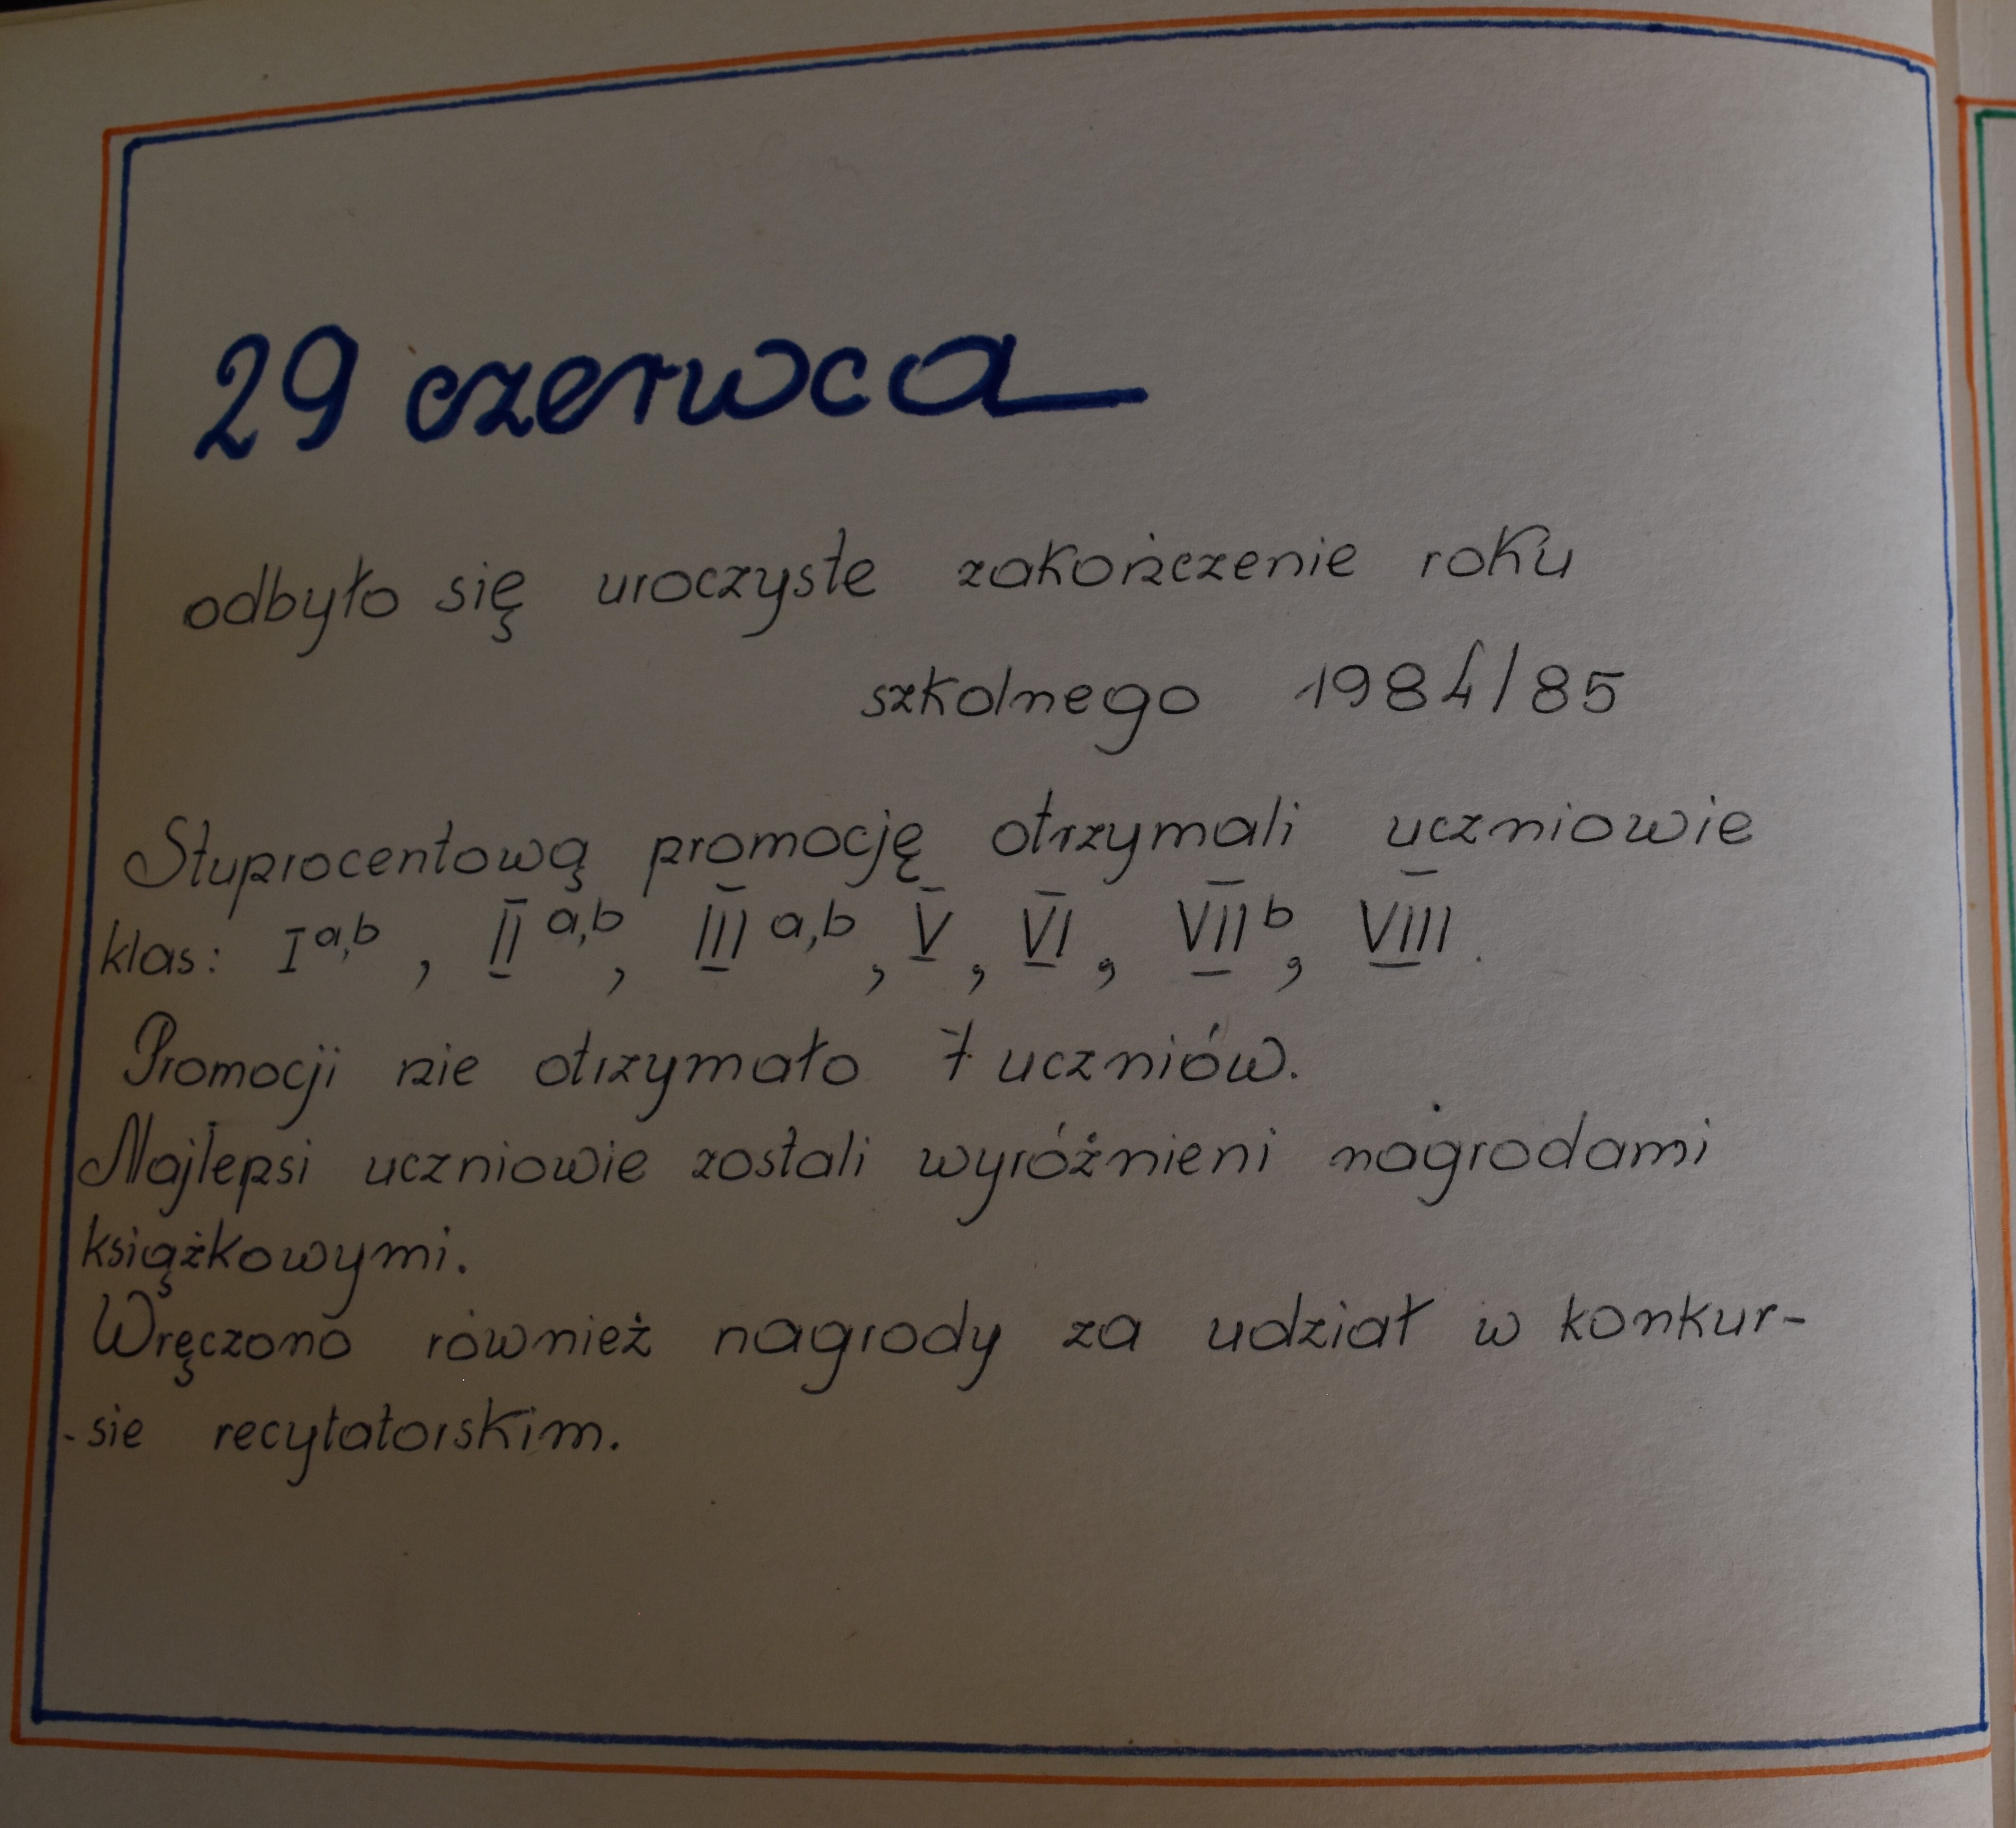 29 czerwca
odbyło się uroczyste zakończenie roku
szkolnego 1984/85
Stuprocentową promocję otrzymali uczniowie
klas: I a,b , II a,b , III a,b , V , VI , VII b , VIII .
Promocji nie otrzymało 7 uczniów.
Najlepsi uczniowie zostali wyróżnieni nagrodami
książkowymi.
Wręczono również nagrody za udział w konkur-
-sie recytatorskim.